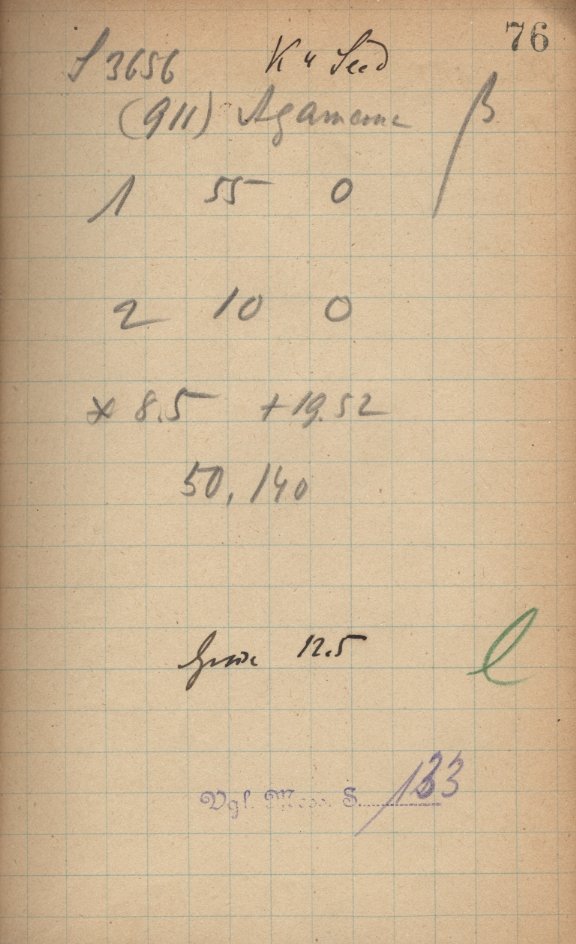 76
J 3656 K" Seed
(911) Agamemn β
1 55 0
2 10 0
* 8.5 + 19.52
50, 140
12.5
Vgl. Mess. S. 133